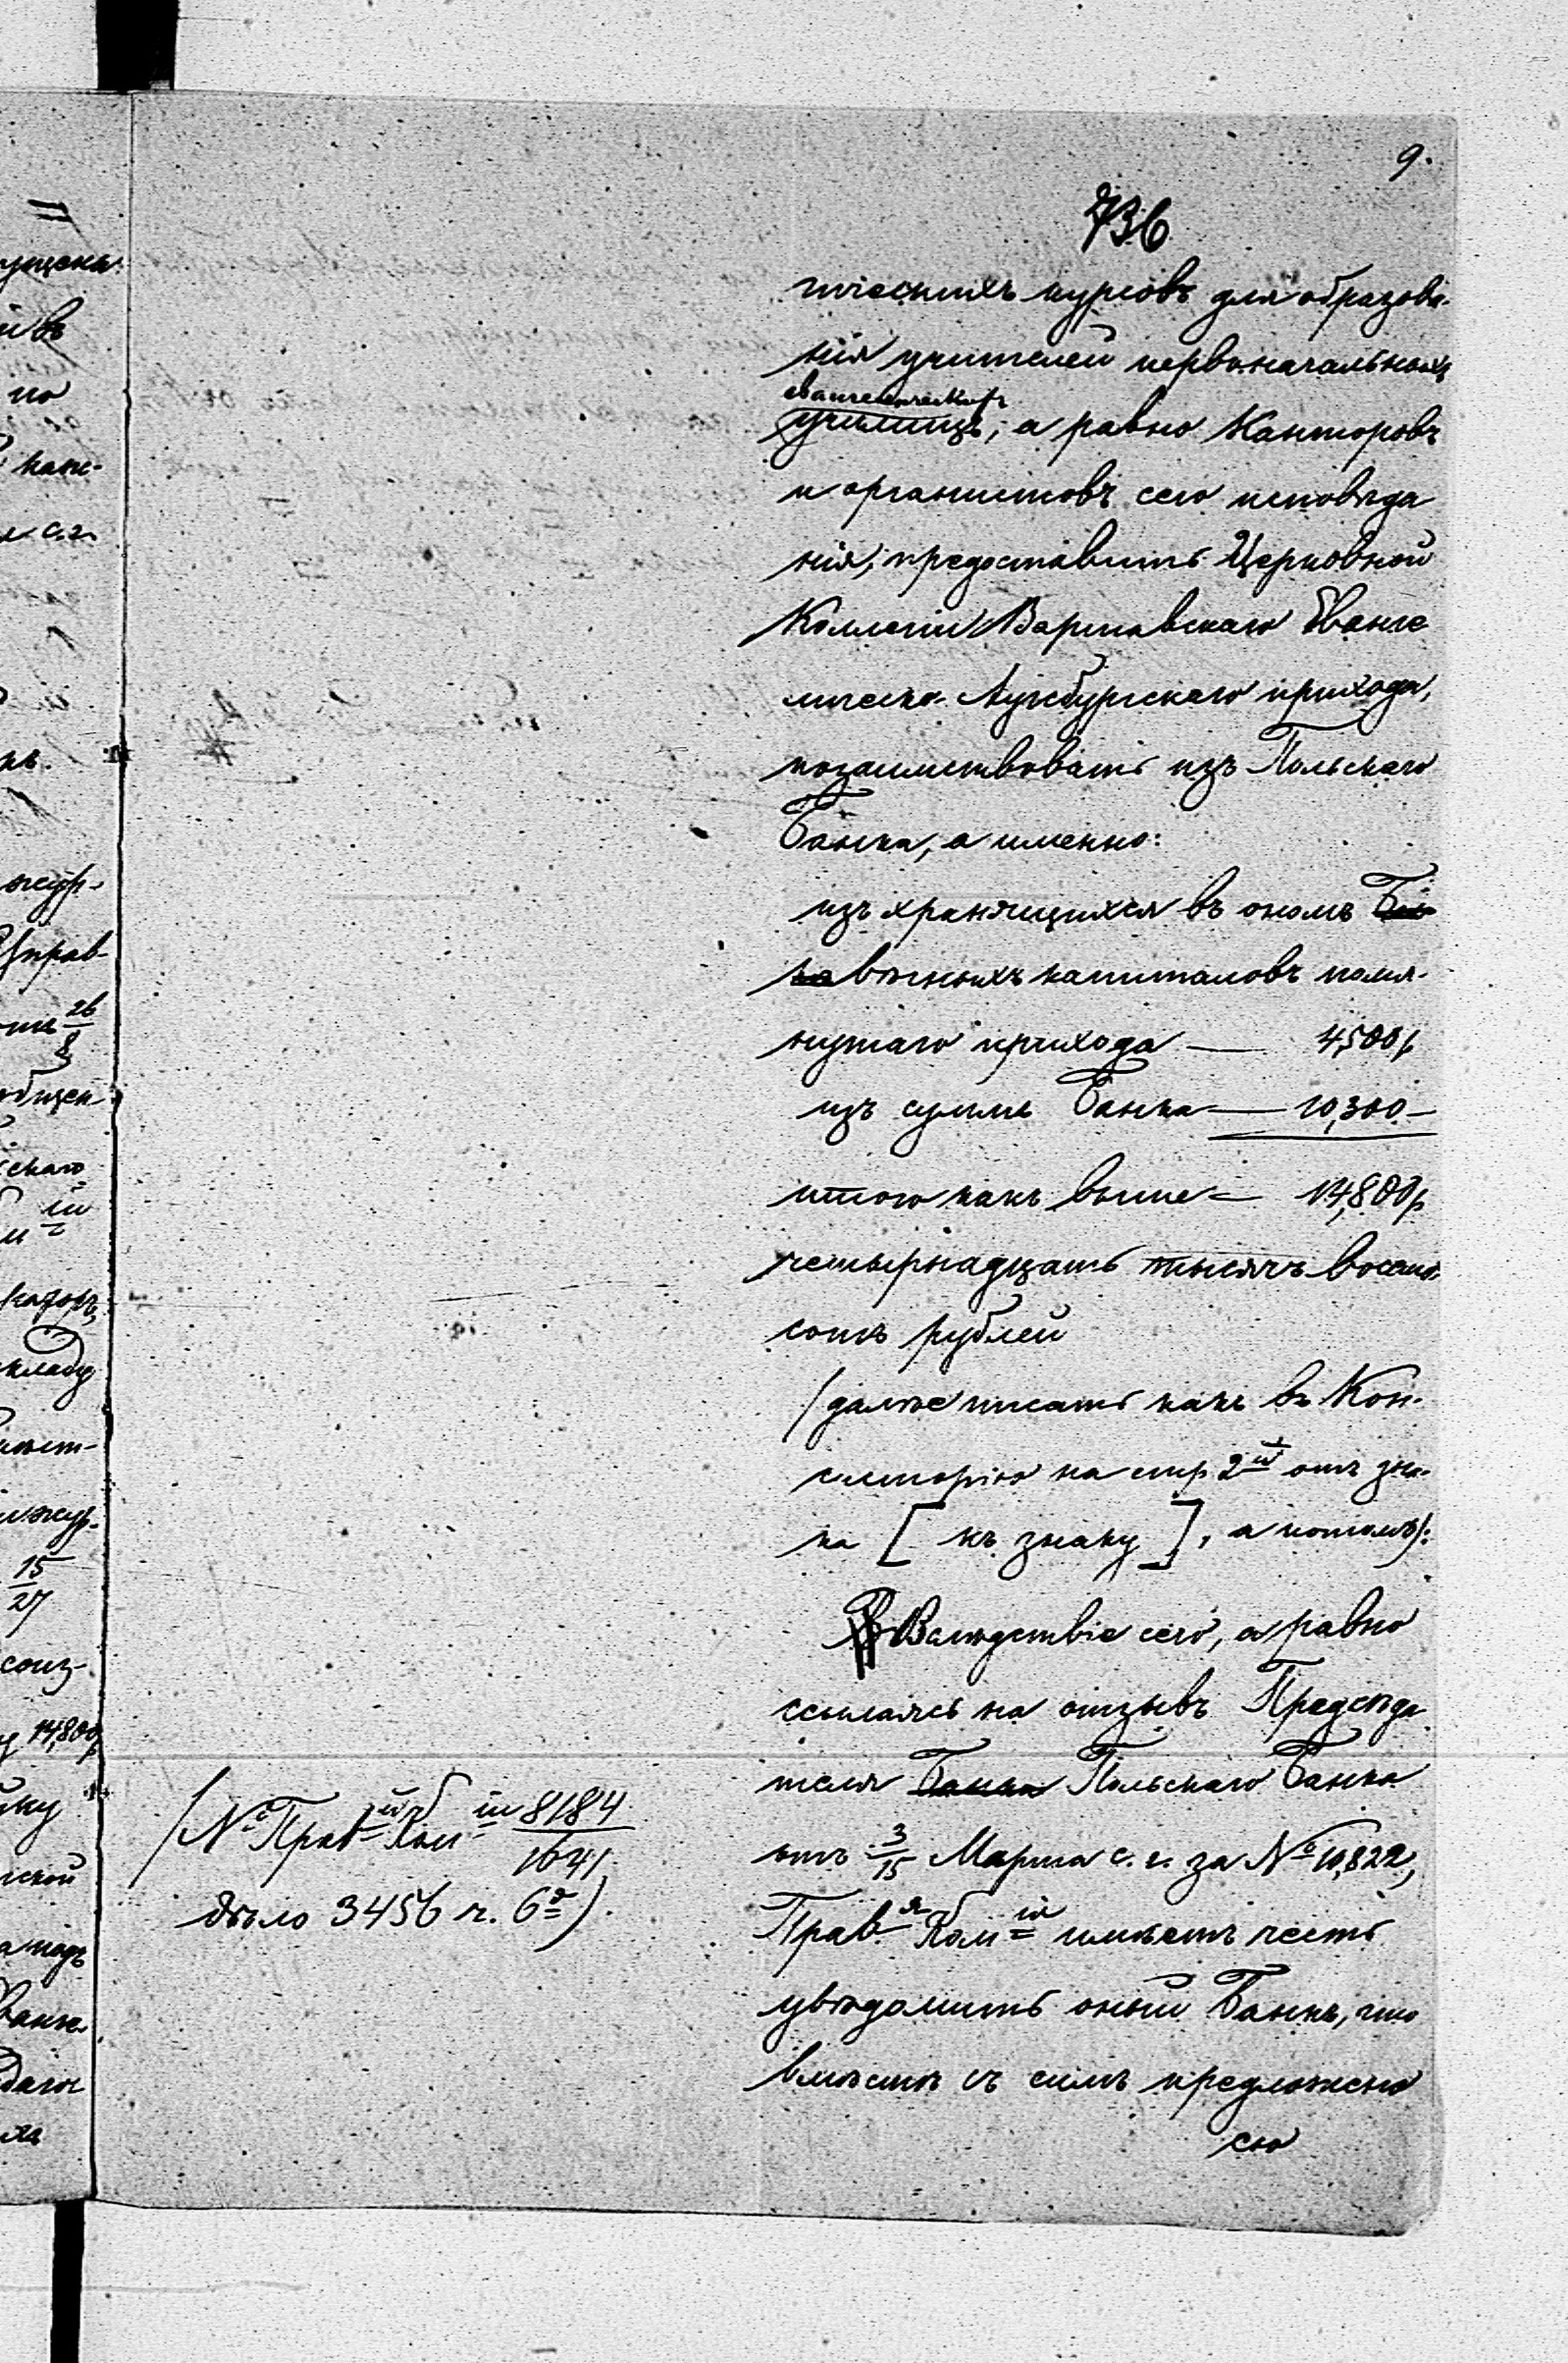 9.
736
гическихъ курсовъ для образова-
нія учителей первоначальныхъ
евангелическихъ
училищъ, а равно Канторовъ
и органистовъ сего исповѣда
нія, предоставить Церковной
Коллегіи Варшавскаго Еванге
лическо-Аугсбургскаго прихода,
позаимствовать изъ Польскаго
Банка, а именно:
изъ хранящихся въ ономъ Бан
ка вѣчныхъ капиталовъ помя-
нутаго прихода — 4,500 р
изъ суммъ Банка — 10,300 —
итого какъ выше — 14,800 р
четырнадцать тысячъ восемь
сотъ рублей
(далѣе писать какъ въ Кон-
систорію на стр 2й отъ зна-
ка [ къ знаку ], а потомъ):
Вслѣдствіе сего, а равно
ссылаясь на отзывъ Предсѣда
теля Банка Польскаго Банка
отъ 3/15 Марта с. г. за № 10,822,
Прав.ая Ком.ія имѣетъ честь
увѣдомить оный Банкъ, что
вмѣстѣ съ симъ предложено
сю
(№ Прав.ой Ком.іи 8184/1641
дѣло 3456 ч. 6я).
ущена
й въ
по
с.г.
жур-
Управ-
26/8
общен-
скаго
ій
кладу
жур-
15/27
соиз-
14,800 р
ской